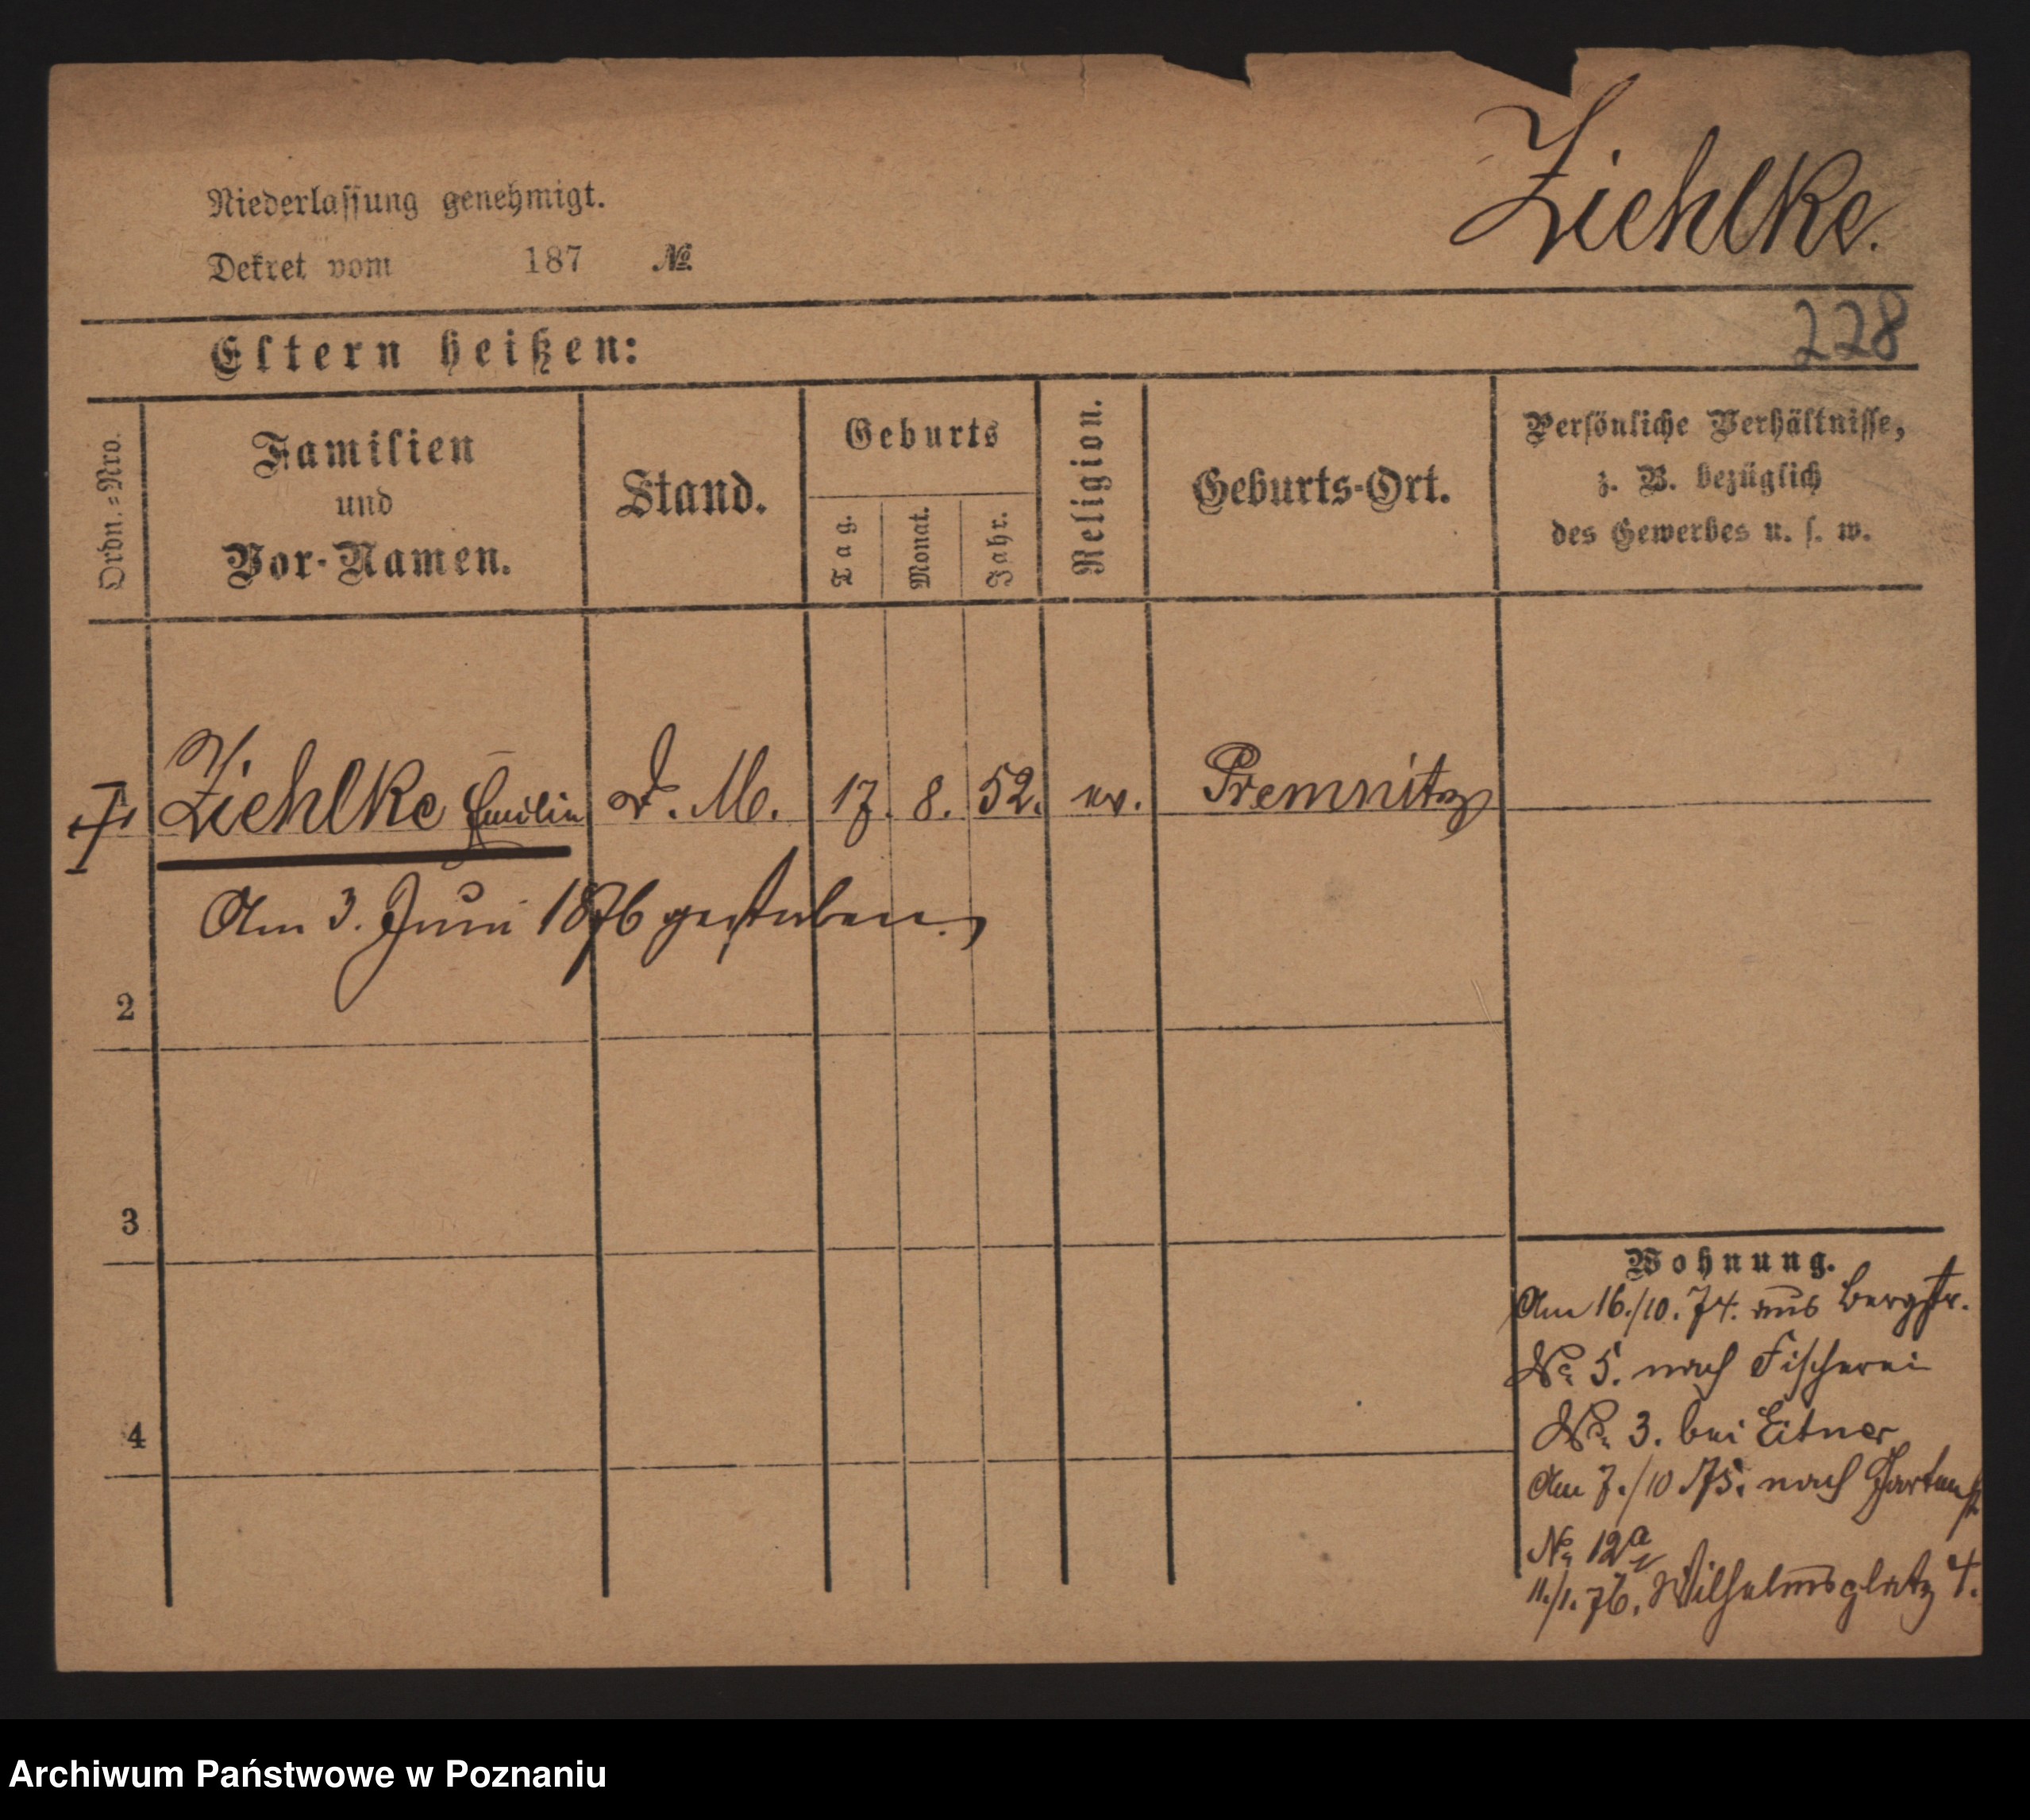 Ziehlke.
Niederlassung genehmigt.
Dekret vom 187 №
228
Eltern heißen:
Ordn.=Nro.
Familien
und
Vor-Namen.
Stand.
Geburts
Tag.
Monat.
Jahr.
Religion.
Geburts-Ort.
Persönliche Verhältnisse,
z. B. bezüglich
des Gewerbes u. s. w.
Ziehlke Emilie D. M. 17. 8. 52. ev. Premnitz
Am 3. Juni 1876 gestorben.
2
3
4
Wohnung.
Am 16./10. 74. aus Bergstr.
No 5. nach Fischerei
No 3. bei Eitner
Am 7./10 75. nach Gartenstr
No 12a
11./1. 76. Wilhelmsplatz 4.
Archiwum Państwowe w Poznaniu